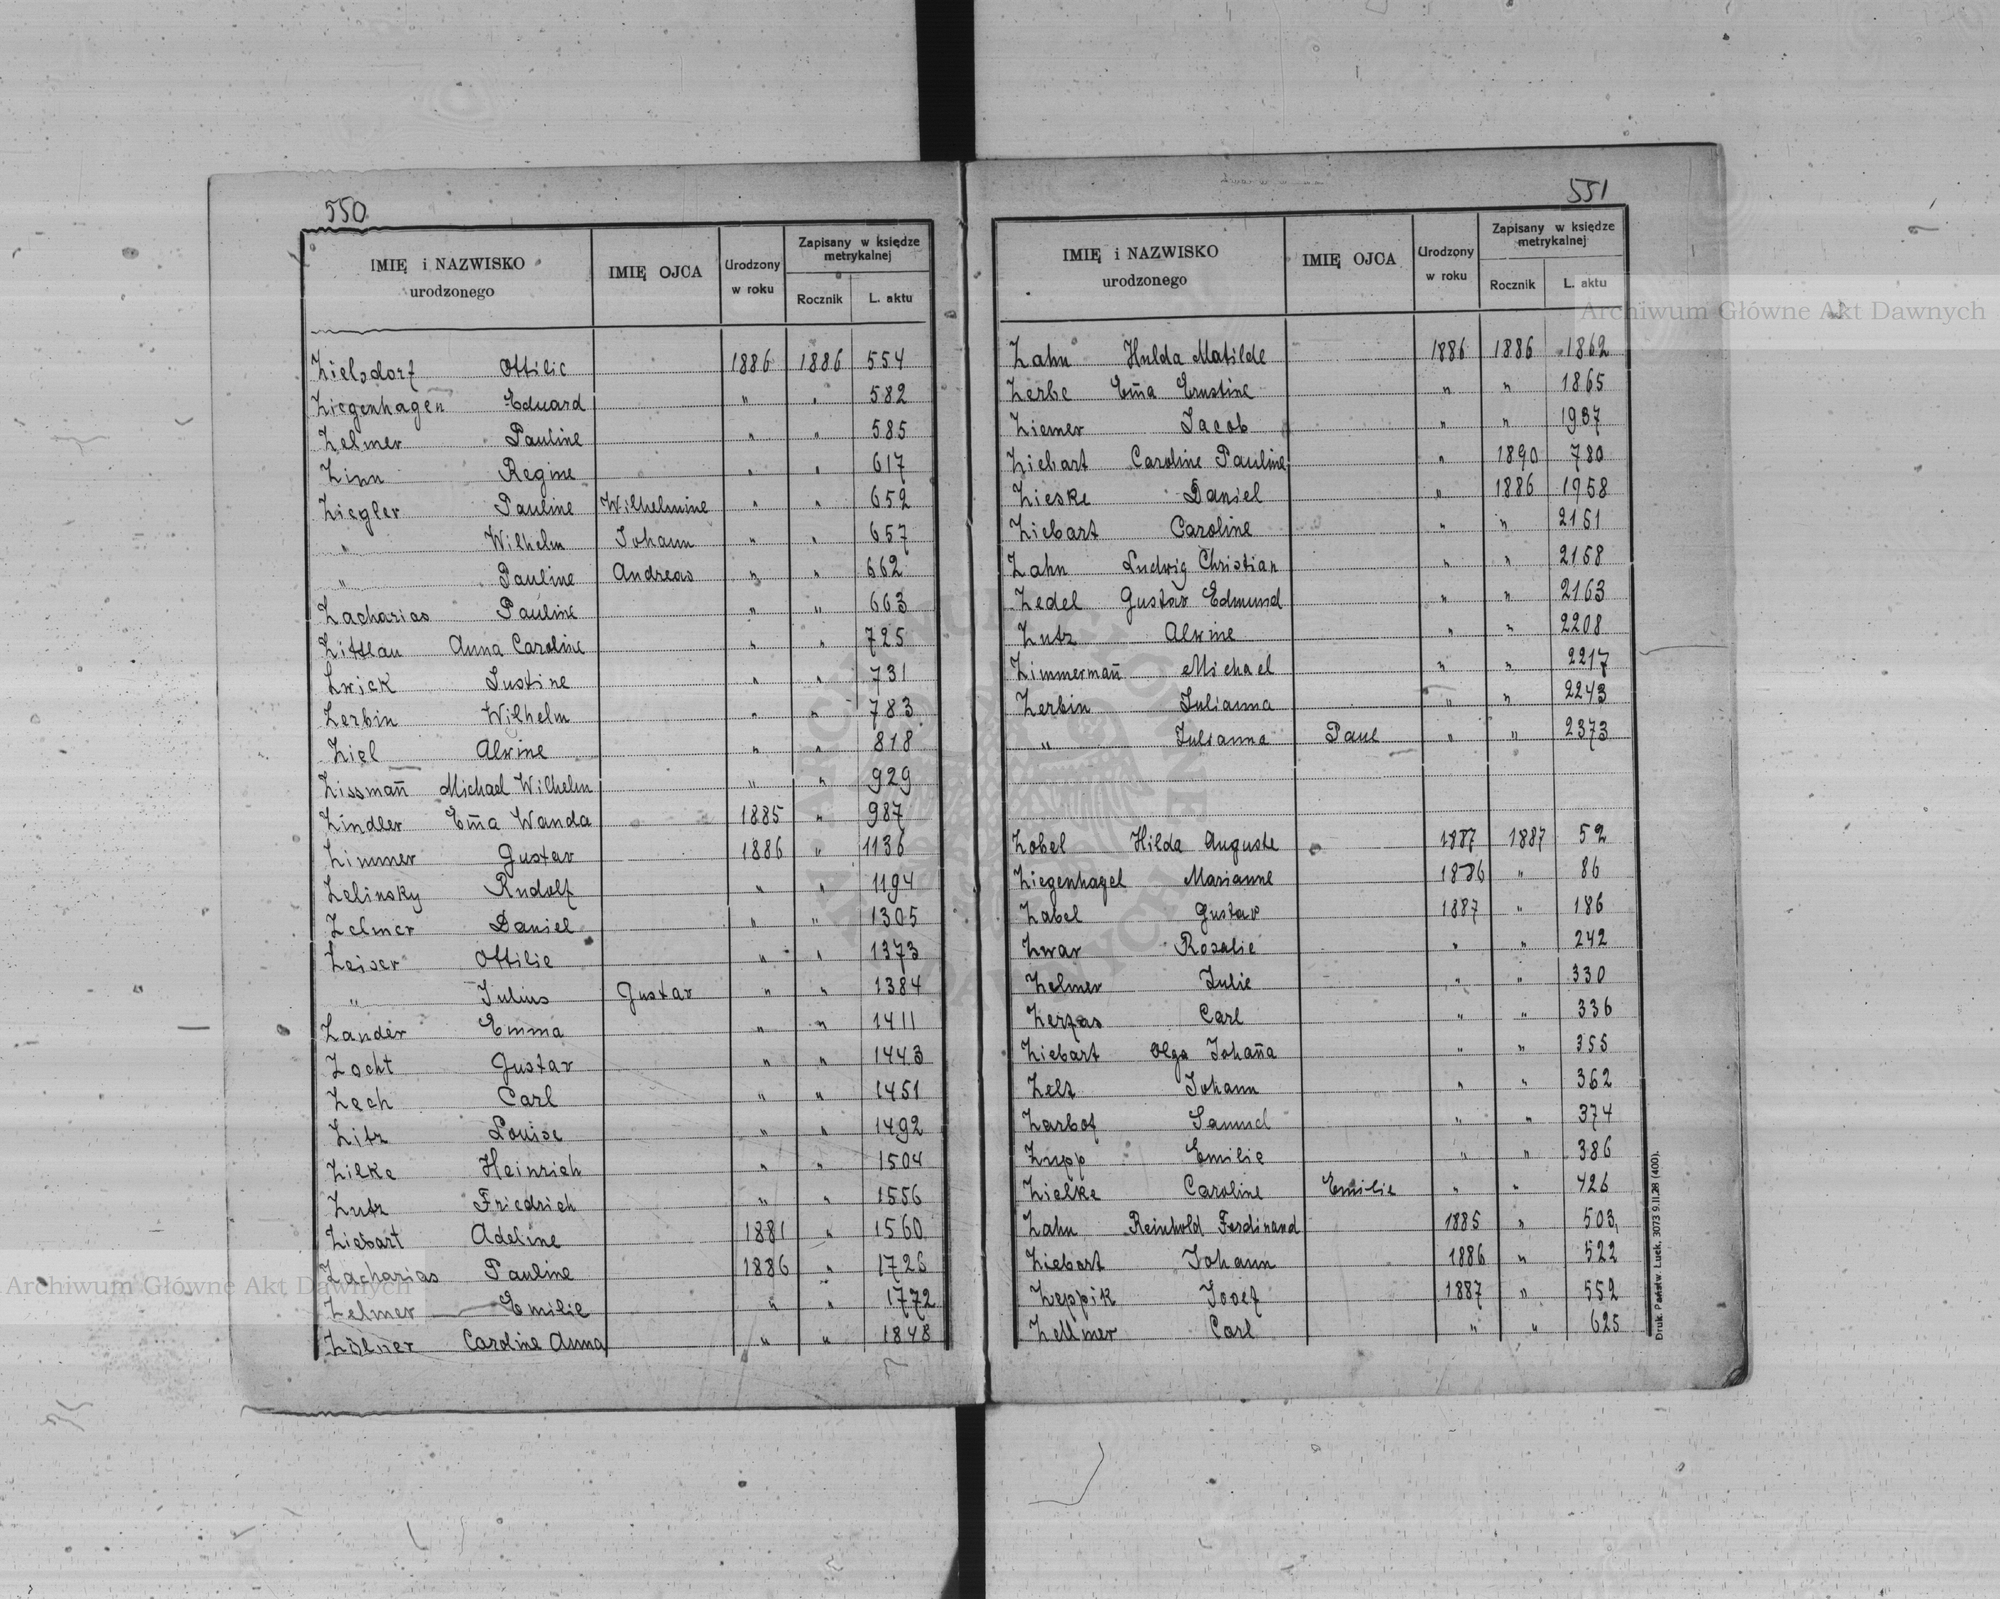 550
IMIĘ i NAZWISKO urodzonego IMIĘ OJCA Urodzony w roku Zapisany w księdze metrykalnej Rocznik L. aktu
Zielsdorf Ottilie 1886 1886 554
Ziegenhagen Eduard " " 582
Zelmer Pauline " " 585
Zinn Regine " " 617
Ziegler Pauline Wilhelmine " " 652
" Wilhelm Johann " " 657
" Pauline Andreas " " 662
Zacharias Pauline " " 663
Zittlau Anna Caroline " " 725
Zwick Justine " " 731
Zerbin Wilhelm " " 783
Ziel Alwine " " 818
Zissmañ Michael Wilhelm " " 929
Zindler Em̃a Wanda 1885 " 987
Zimmer Gustav 1886 " 1136
Zelinsky Rudolf " " 1194
Zelmer Daniel " " 1305
Zeiser Ottilie " " 1373
" Julius Gustav " " 1384
Zander Emma " " 1411
Zocht Gustav " " 1443
Zech Carl " " 1451
Zitz Louise " " 1492
Zilke Heinrich " " 1504
Zutz Friedrich " " 1556
Ziebart Adeline 1881 " 1560
Zacharias Pauline 1886 " 1726
Zelmer Emilie " " 1772
Caroline Anna " " 1848
551
IMIĘ i NAZWISKO urodzonego IMIĘ OJCA Urodzony w roku Zapisany w księdze metrykalnej Rocznik L. aktu
Zahn Hulda Matilde 1886 1886 1862
Zerbe Em̃a Ernstine " " 1865
Ziemer Jacob " " 1937
Ziebart Caroline Pauline " 1890 780
Zieske Daniel " 1886 1958
Ziebart Caroline " " 2151
Zahn Ludwig Christian " " 2158
Zedel Gustav Edmund " " 2163
Zutz Alwine " " 2208
Zimmermañ Michael " " 2217
Zerbin Julianna " " 2243
" Julianna Paul " " 2373
Zobel Hilda Auguste 1887 1887 52
Ziegenhagel Marianne 1886 " 86
Zabel Gustav 1887 " 186
Zwar Rosalie " " 242
Zelmer Julie " " 330
Carl " " 336
Ziebart Olga Johaña " " 355
Zelz Johann " " 362
Zarbof Samuel " " 374
Zupp Emilie " " 386
Zielke Caroline Emilie " " 426
Zahn Reinhold Ferdinand 1885 " 503
Ziebart Johann 1886 " 522
Zeppik Josef 1887 " 552
Zellmer Carl " " 625
Druk. Państw. Łuck. 3073 9.II.28 (400).
Archiwum Główne Akt Dawnych
Archiwum Główne Akt Dawnych
ARCHIWUM GŁÓWNE AKT DAWNYCH